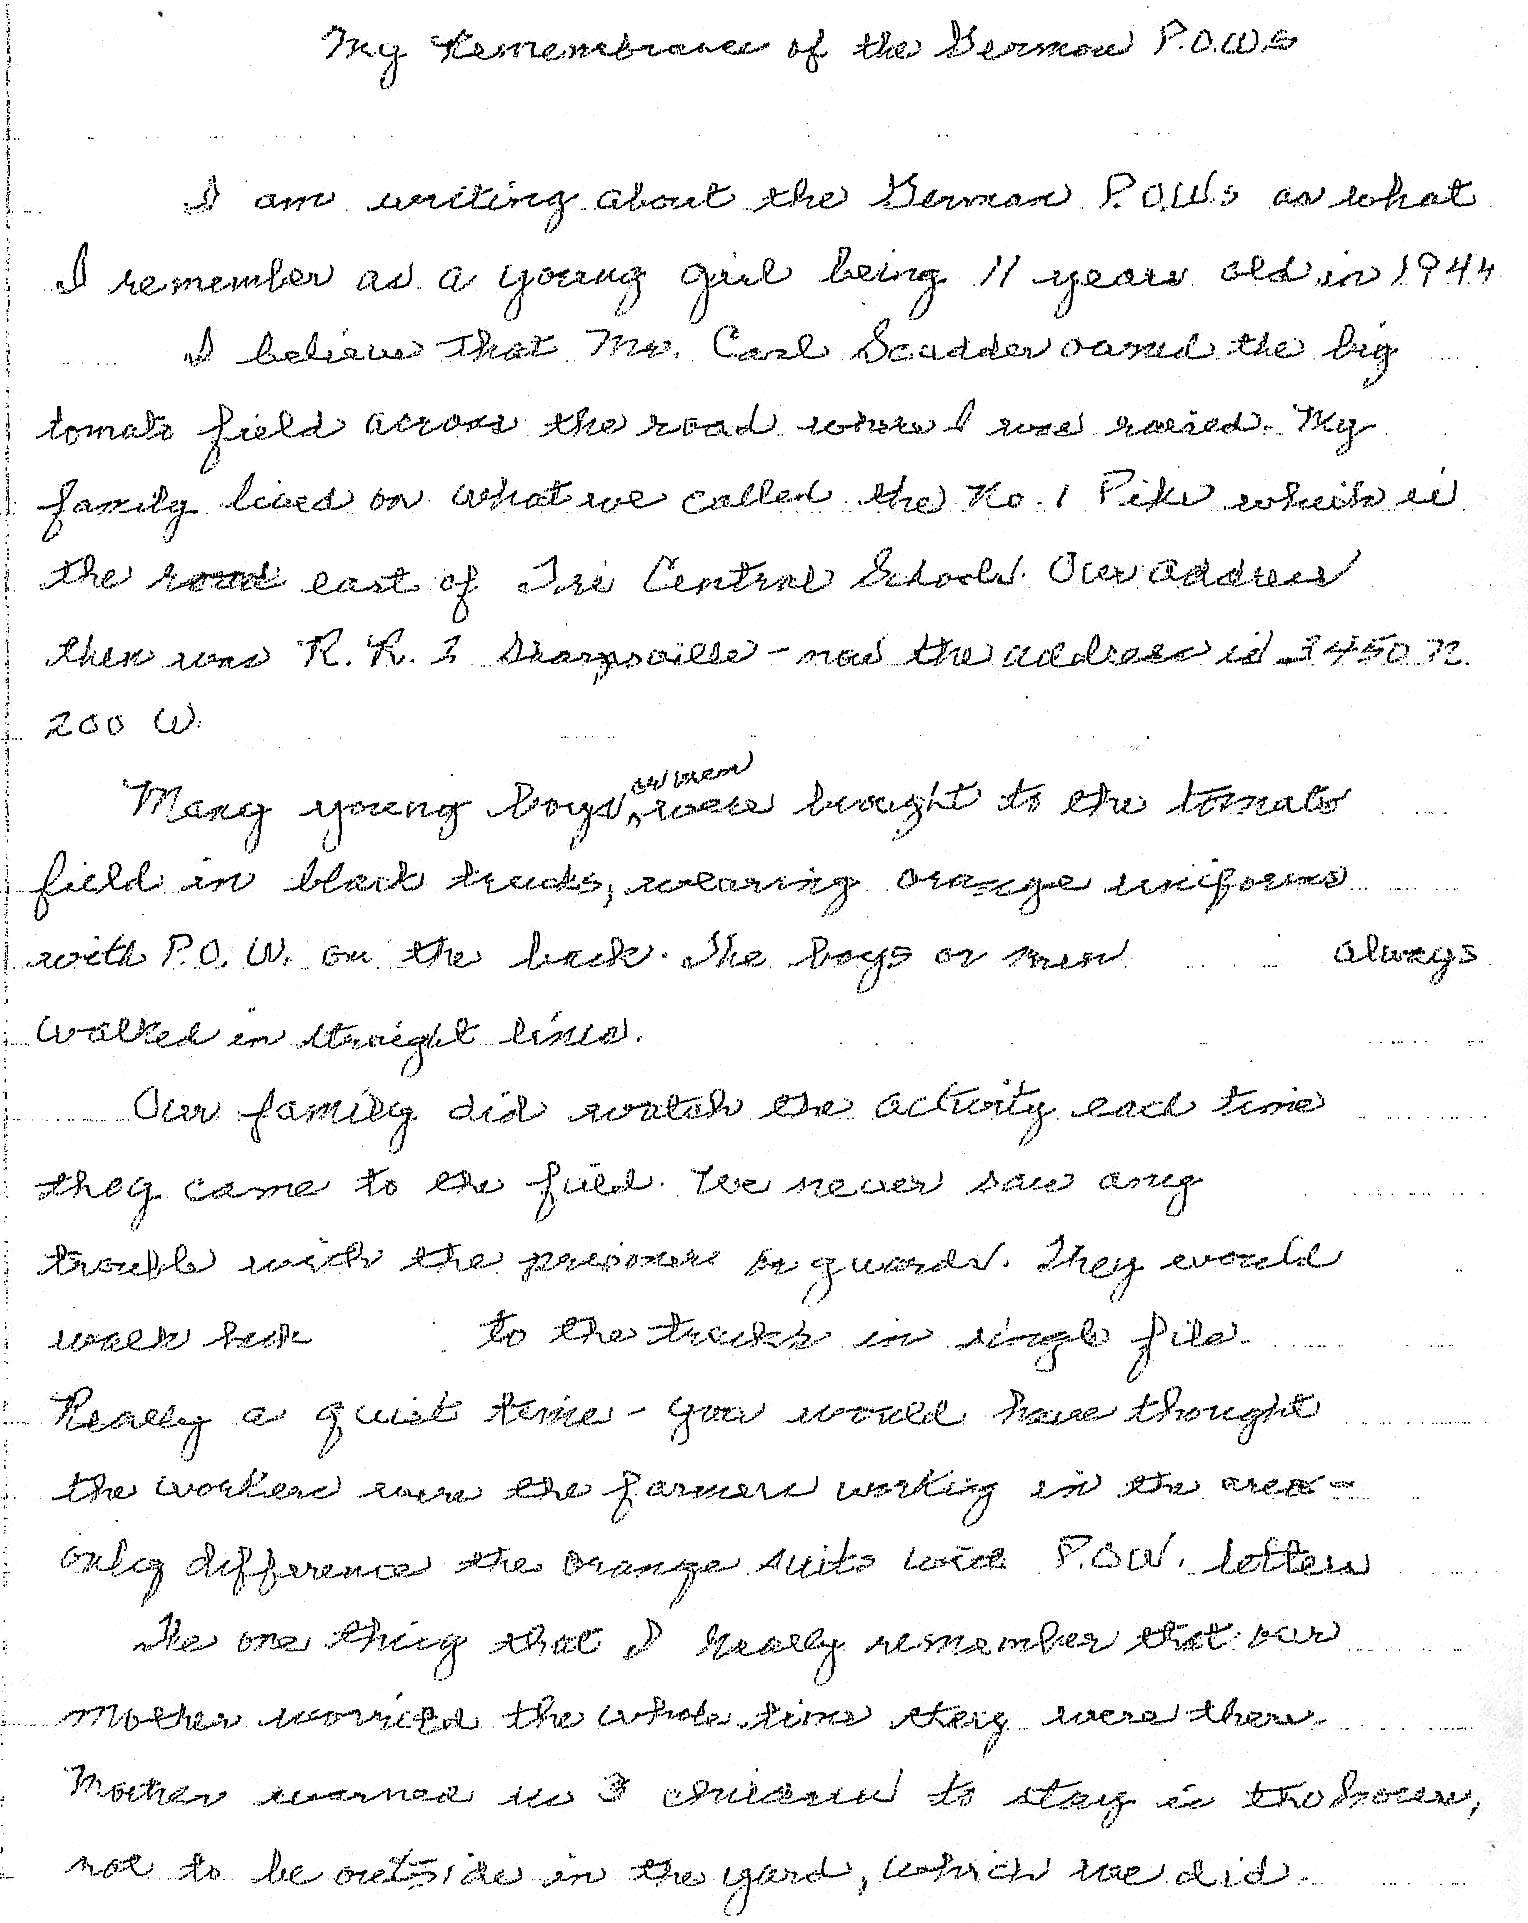 My Remembrance of the German P.O.W.s
I am writing about the German P.O.W.s as what
I remember as a young girl being 11 years old in 1944
I believe that Mr. Carl Scudder owned the big
tomato field across the road where I was raised. My
family lived on what we called the No. 1 Pike which is
the road east of Tri Central Schools. Our address
then was R.R. 2 Sharpsville - now the address is 3450 N.
200 W.
Many young boys, or men were brought to the tomato
field in black trucks, wearing orange uniforms
with P.O.W. on the back. The boys or men always
walked in straight lines.
Our family did watch the activity each time
they came to the field. We never saw any
trouble with the prisoners or guards. They would
walk back to the trucks in single file.
Really a quiet time - you would have thought
the workers were the farmers working in the area -
only difference the orange suits with P.O.W. letters
The one thing that I really remember that our
Mother worried the whole time they were there.
Mother warned us 3 children to stay in the house,
not to be outside in the yard, which we did.